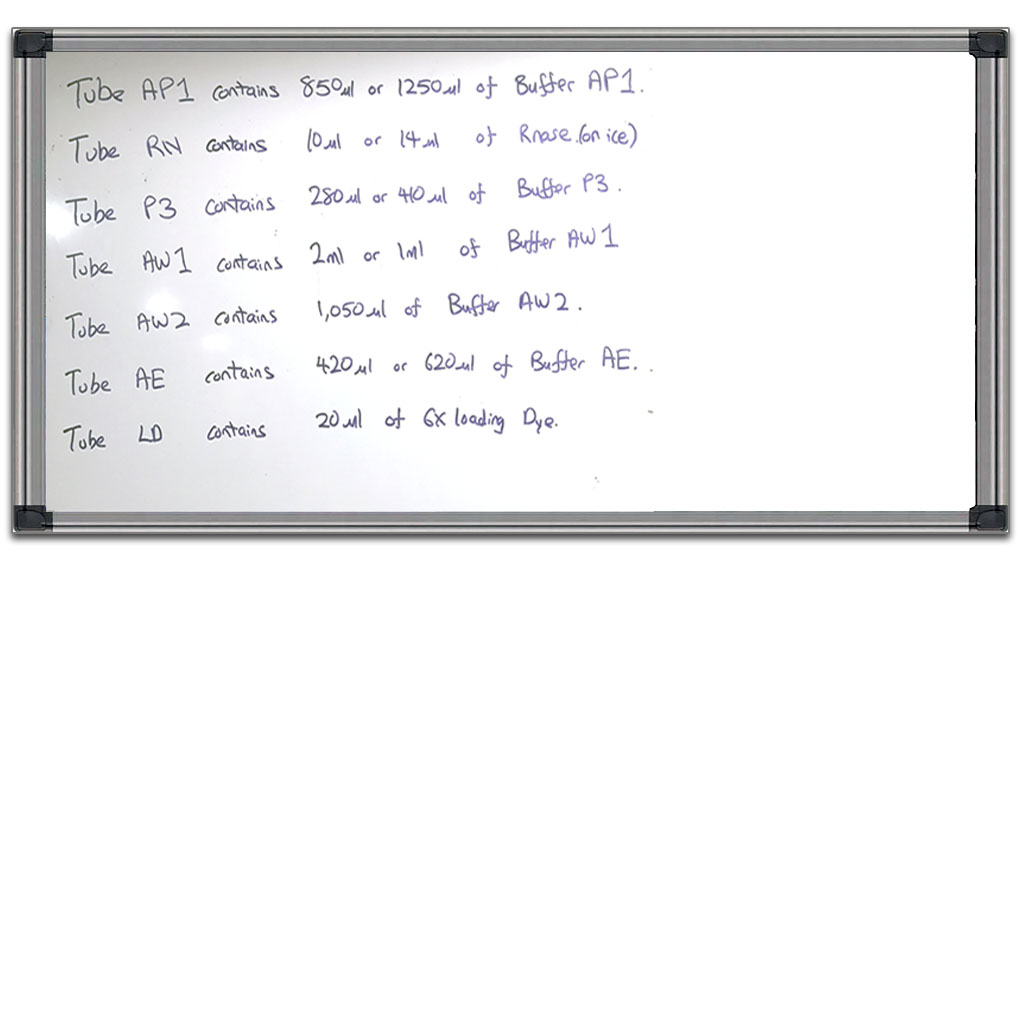 Tube AP1 contains 850µl or 1250µl of Buffer AP1.
Tube RN contains 10µl or 14µl of Rnase.(on ice)
Tube P3 contains 280µl or 410µl of Buffer P3.
Tube AW1 contains 2ml or 1ml of Buffer AW1
Tube AW2 contains 1,050µl of Buffer AW2.
Tube AE contains 420µl or 620µl of Buffer AE.
Tube LD contains 20µl of 6X loading Dye.